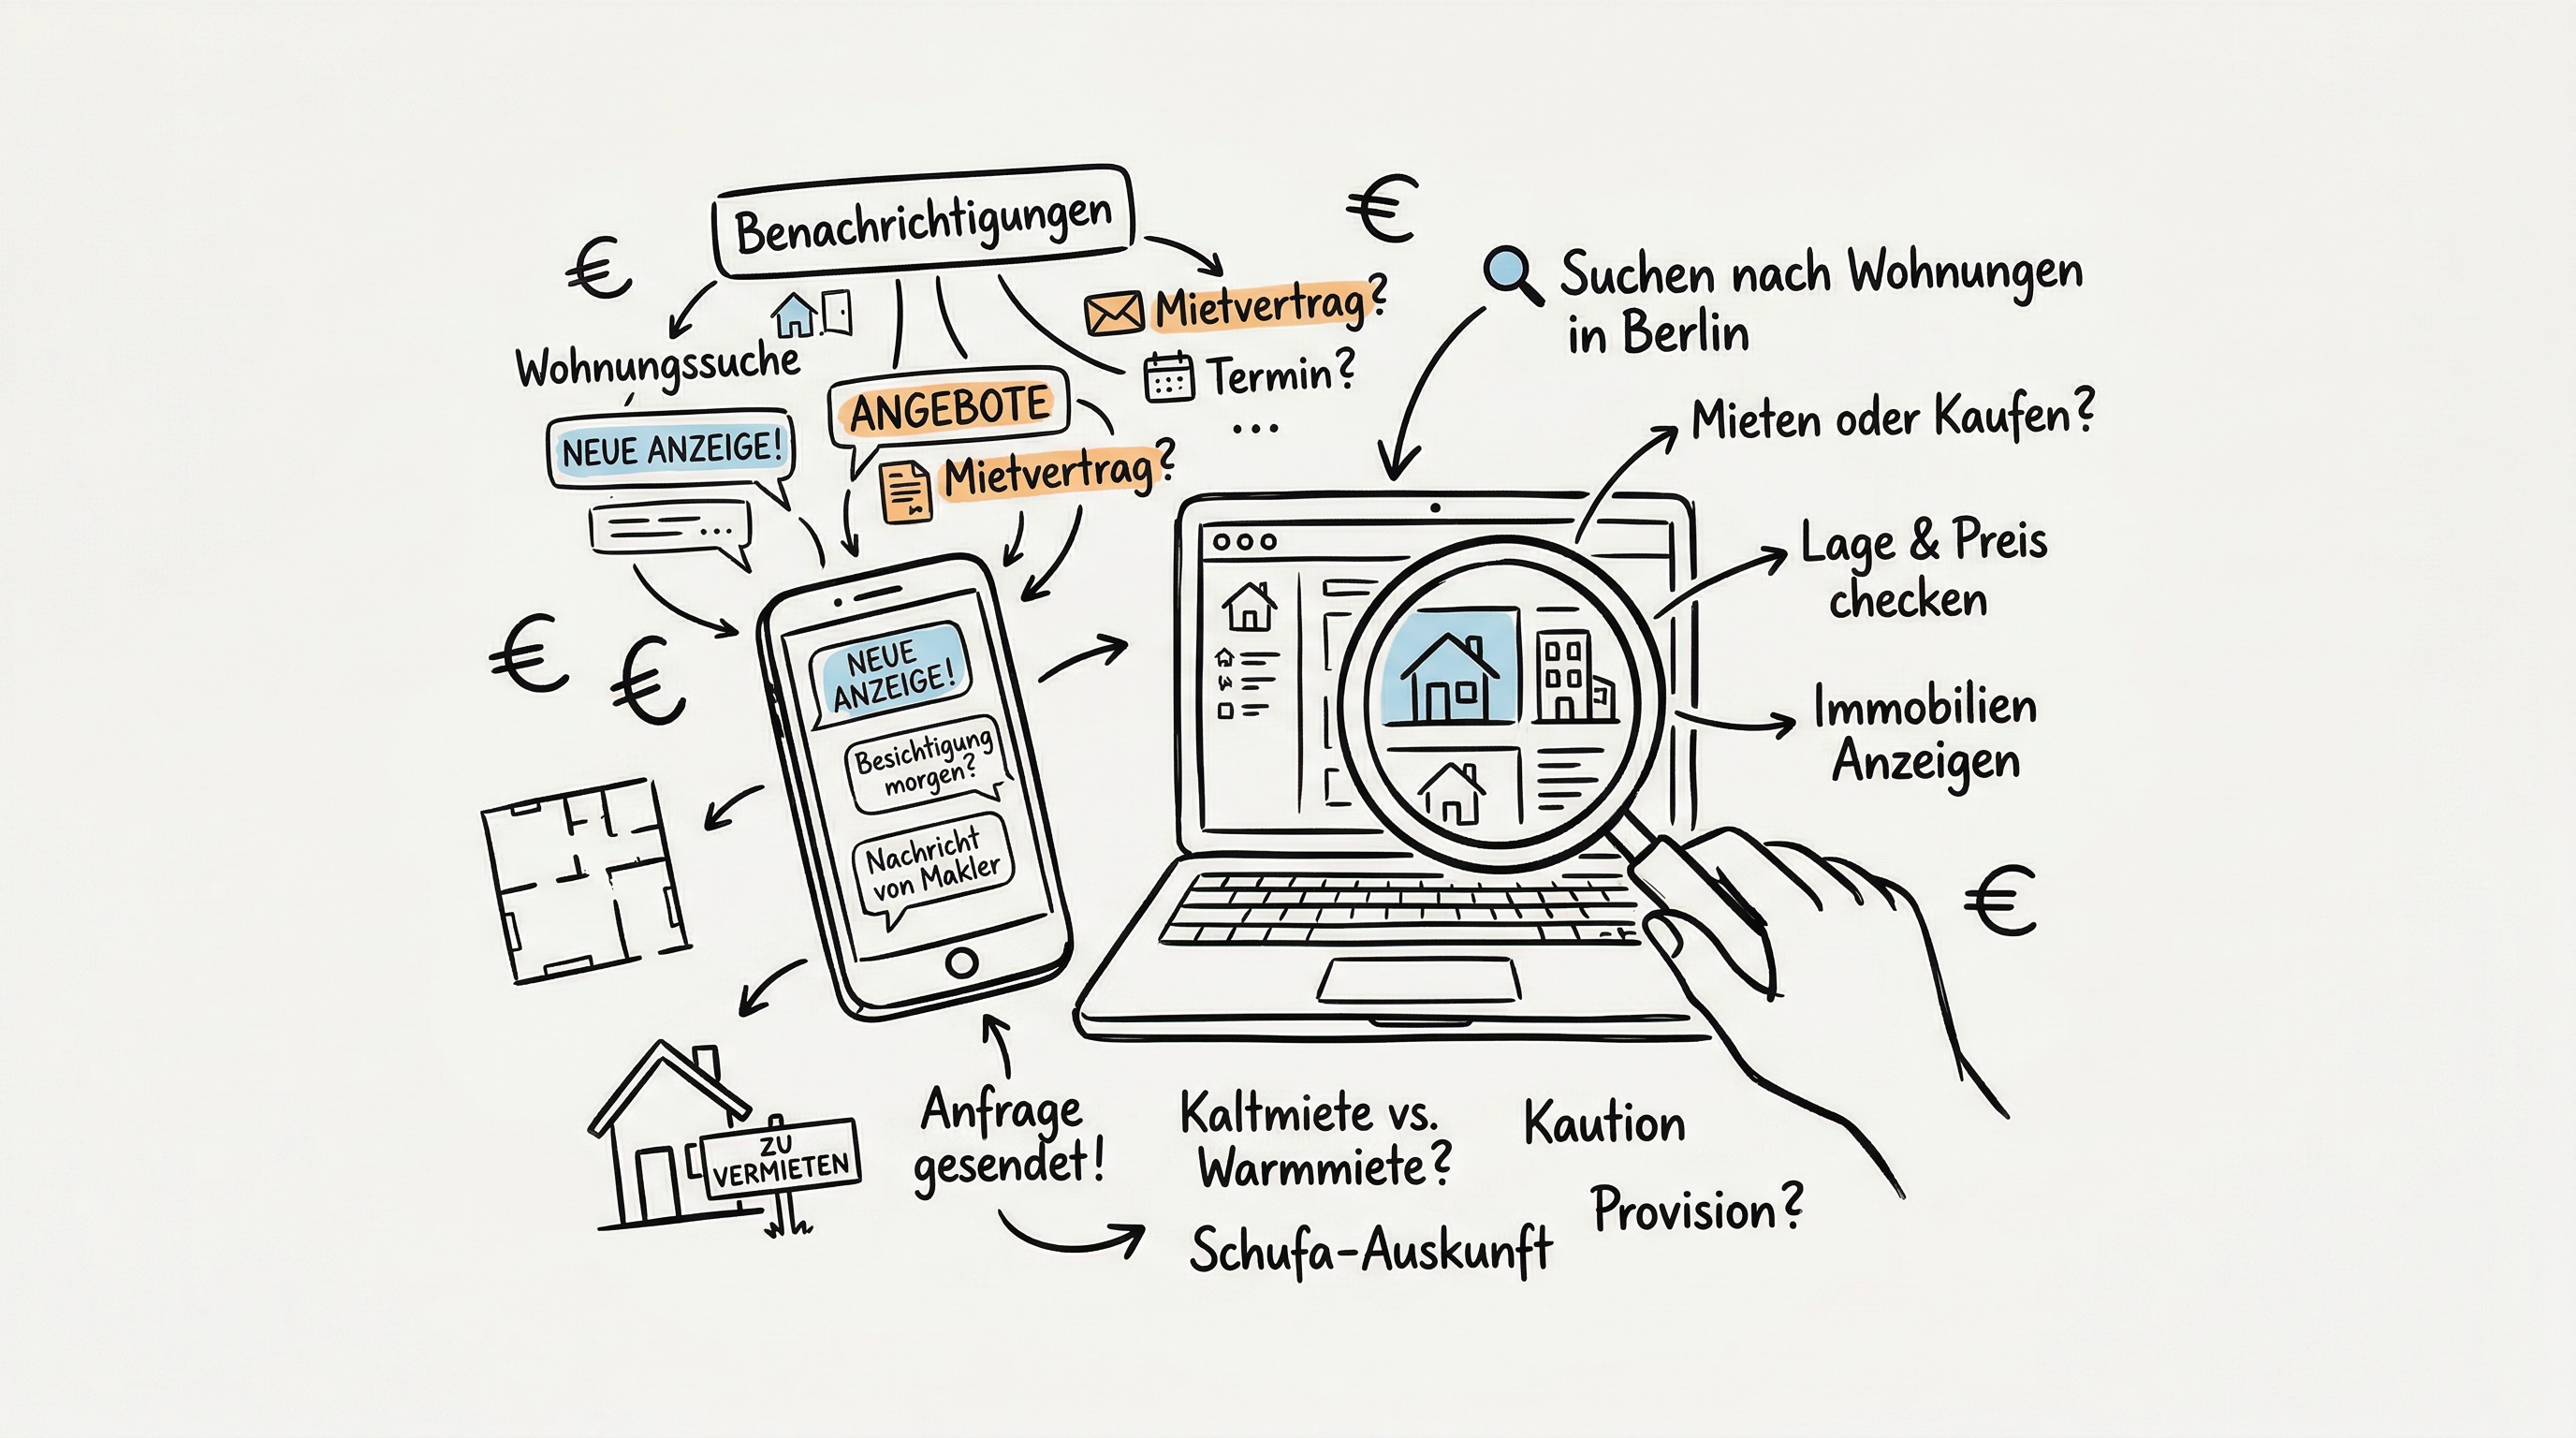 Benachrichtigungen
€
€
Suchen nach Wohnungen
in Berlin
Mietvertrag?
Wohnungssuche
Termin?
...
ANGEBOTE
NEUE ANZEIGE!
Mietvertrag?
...
Mieten oder Kaufen?
Lage & Preis
checken
Immobilien
Anzeigen
€
€
NEUE
ANZEIGE!
Besichtigung
morgen?
Nachricht
von Makler
€
ZU
VERMIETEN
Anfrage
gesendet!
Kaltmiete vs.
Warmmiete?
Kaution
Provision?
Schufa-Auskunft